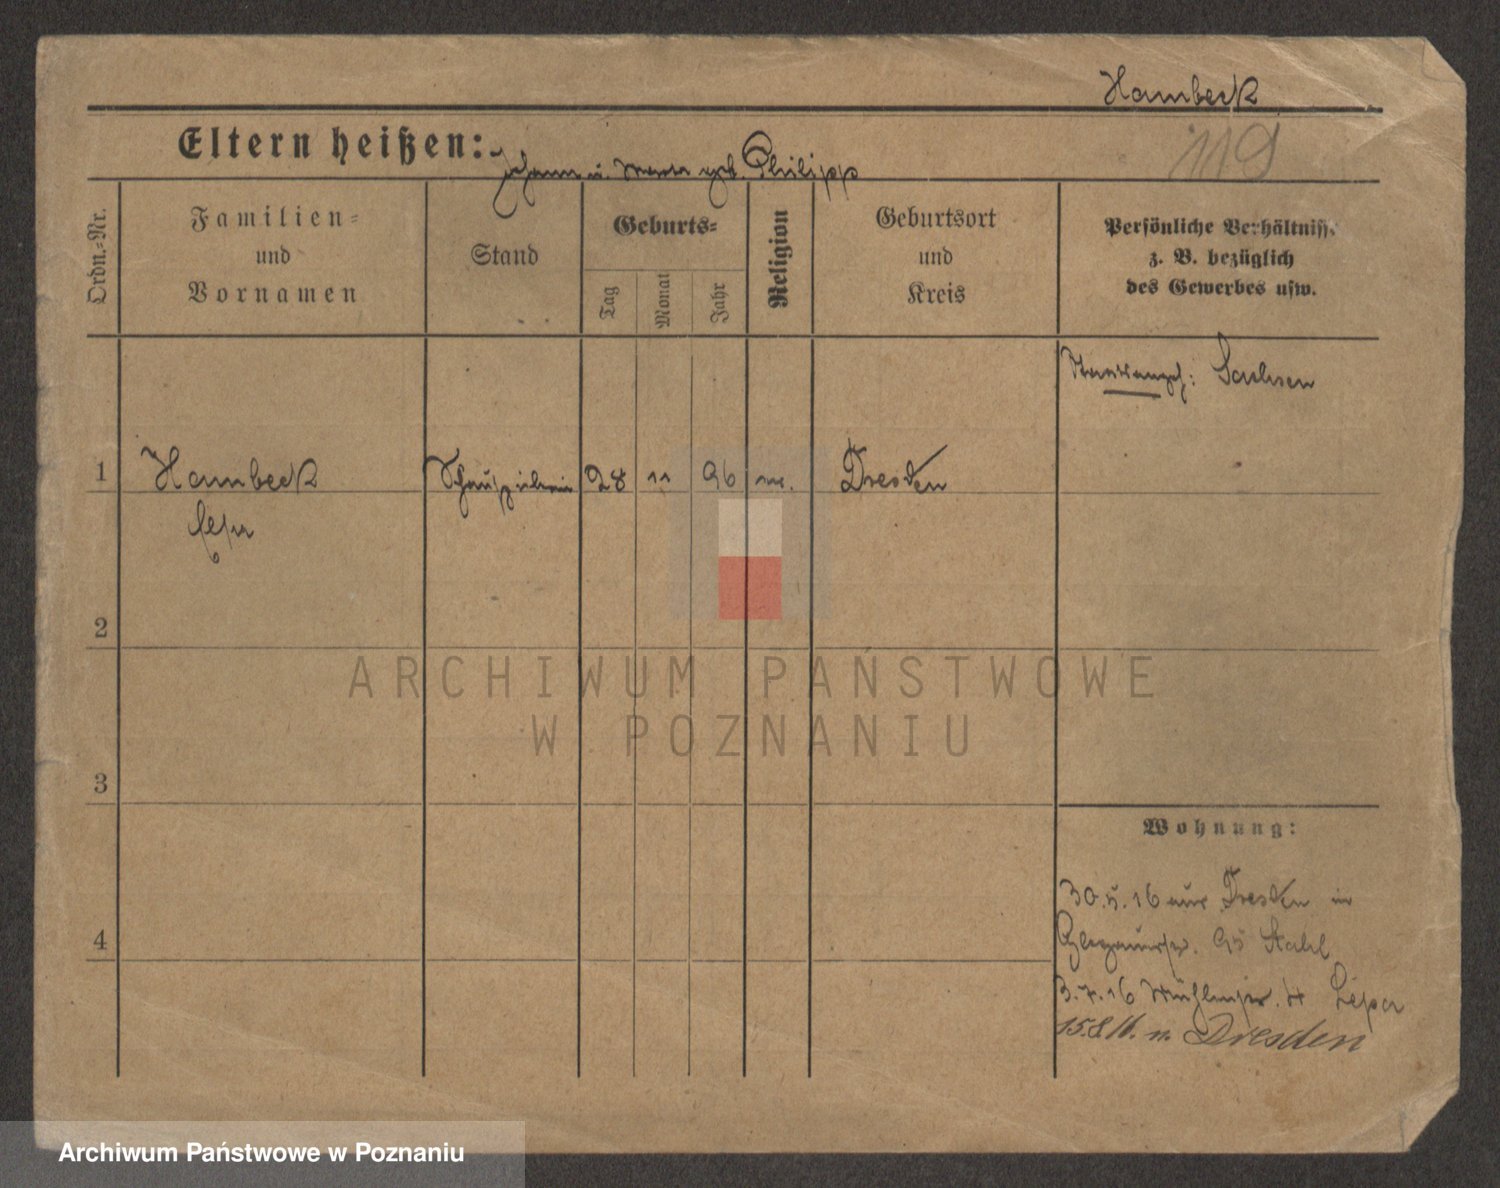 Hambeck
119
Eltern heißen: Johann u. Marta geb. Philipp
Ordn.-Nr.
Familien-
und
Vornamen
Stand
Geburts-
Tag
Monat
Jahr
Religion
Geburtsort
und
Kreis
Persönliche Verhältnisse
z. B. bezüglich
des Gewerbes usw.
Staatsangeh: Sachsen
1 Hambeck Schauspielerin 28 11 96 Dresden
2
ARCHIWUM PAŃSTWOWE
W POZNANIU
3
Wohnung:
30.5.16 aus Dresden in
Glogauerstr. 95 Stahl
4
3.7.16 4
15.8.16. n. Dresden
Archiwum Państwowe w Poznaniu